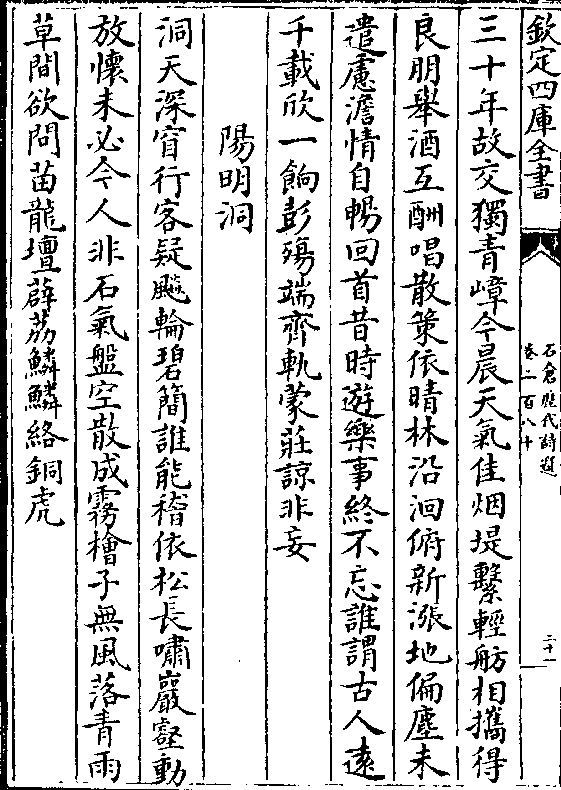 欽定四庫全書
石倉歷代詩選
卷二百八十
二十一
三十年故交獨青嶂今晨天氣佳烟堤繫輕舫相攜得
良朋舉酒互酬唱散策依晴林沿洄俯新漲地偏塵未
遣慮澹情自暢回首昔時遊樂事終不忘誰謂古人遠
千載欣一餉彭殤端齊軌蒙莊諒非妄
陽明洞
洞天深窅行客疑飈輪碧簡誰能稽依松長嘯巖壑動
放懷未必今人非石氣盤空散成霧檜子無風落青雨
草間欲問苗龍壇薜荔鱗鱗絡銅虎